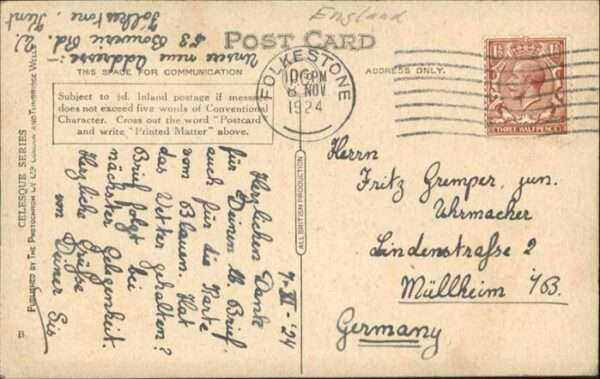 England
Unsere neue Addresse:-
53 Bouverie Rd. W
Folkestone, Kent
POST CARD
THIS SPACE FOR COMMUNICATION
ADDRESS ONLY.
Subject to ½d. Inland postage if message
does not exceed five words of Conventional
Character. Cross out the word "Postcard
and write "Printed Matter" above.
FOLKESTONE
PM
8 NOV
1924
THREE HALFPENCE
CELESQUE SERIES
PUBLISHED BY THE PHOTOCHROM CO. LTD LONDON AND TUNBRIDGE WELLS
B.
ALL BRITISH PRODUCTION
7. XI - '24
Herzlichen Dank
für Deinen lb. Brief,
auch für die Karte
vom Blauen. Hat
das Wetter gehalten?
Brief folgt bei
nächster Gelegenheit.
Herzliche Grüße
von Deiner Sis
Herrn
Fritz Gremper, jun.
Uhrmacher
Lindenstraße 2
Müllheim i/B.
Germany